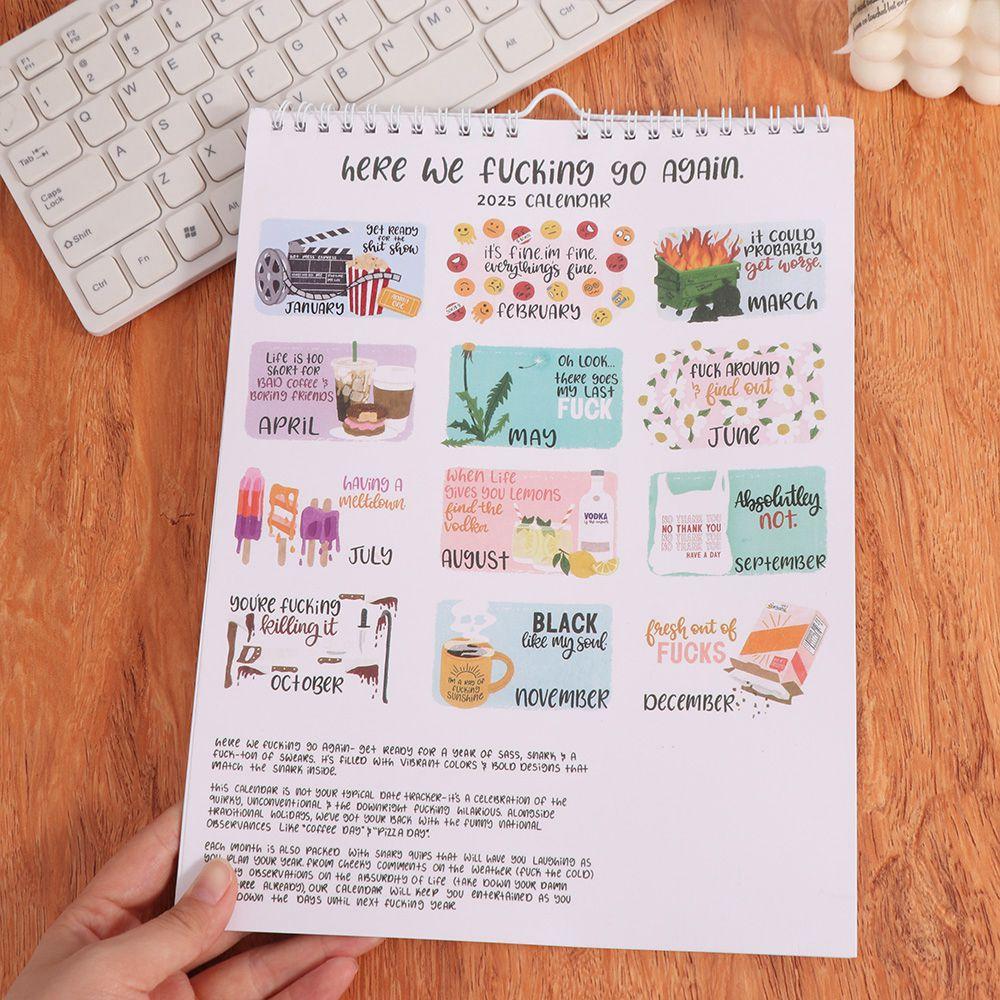 here we fucking go again.
2025 CALENDAR
get ready
for the
shit show
JANUARY
it's fine. im fine.
everythings fine.
february
it could
probably
get worse.
MARCH
Life is too
short for
BAD COFFEE &
BORING FRIENDS
APRIL
Oh Look...
there goes
my last
FUCK
MAY
FUCK AROUND
& find out
JUNE
having a
meltdown
JULY
when Life
gives you lemons
find the
vodka
VODKA
AUGUST
NO THANK YOU
NO THANK YOU
NO THANK YOU
NO THANK YOU
HAVE A DAY
Absolutley
not.
september
you're fucking
killing it
OCTOBER
I'M A RAY OF
FUCKING
SUNSHINE
BLACK
like my soul
NOVEMBER
fresh out of
FUCKS
DECEMBER
here we fucking go again- get ready for a year of sass, snark & a
fuck-ton of swears. It's filled with vibrant colors & bold designs that
match the snark inside.
this calendar is not your typical date tracker-it's a celebration of the
quirky, unconventional & the downright fucking hilarious. Alongside
traditional holidays, we've got your back with the funny national
observances like "coffee day" & "pizza day".
each month is also packed with snarky quips that will have you laughing as
you plan your year. from cheeky comments on the weather (fuck the cold)
observations on the absurdity of life (take down your damn
already), our calendar will keep you entertained as you
down the days until next fucking year
F1
F2
F3
1
2
3
4
Q
W
E
R
A
S
D
F
Z
X
C
V
B
N
M
Tab
Caps
Lock
Shift
Ctrl
Fn
Alt
Alt
Ctrl